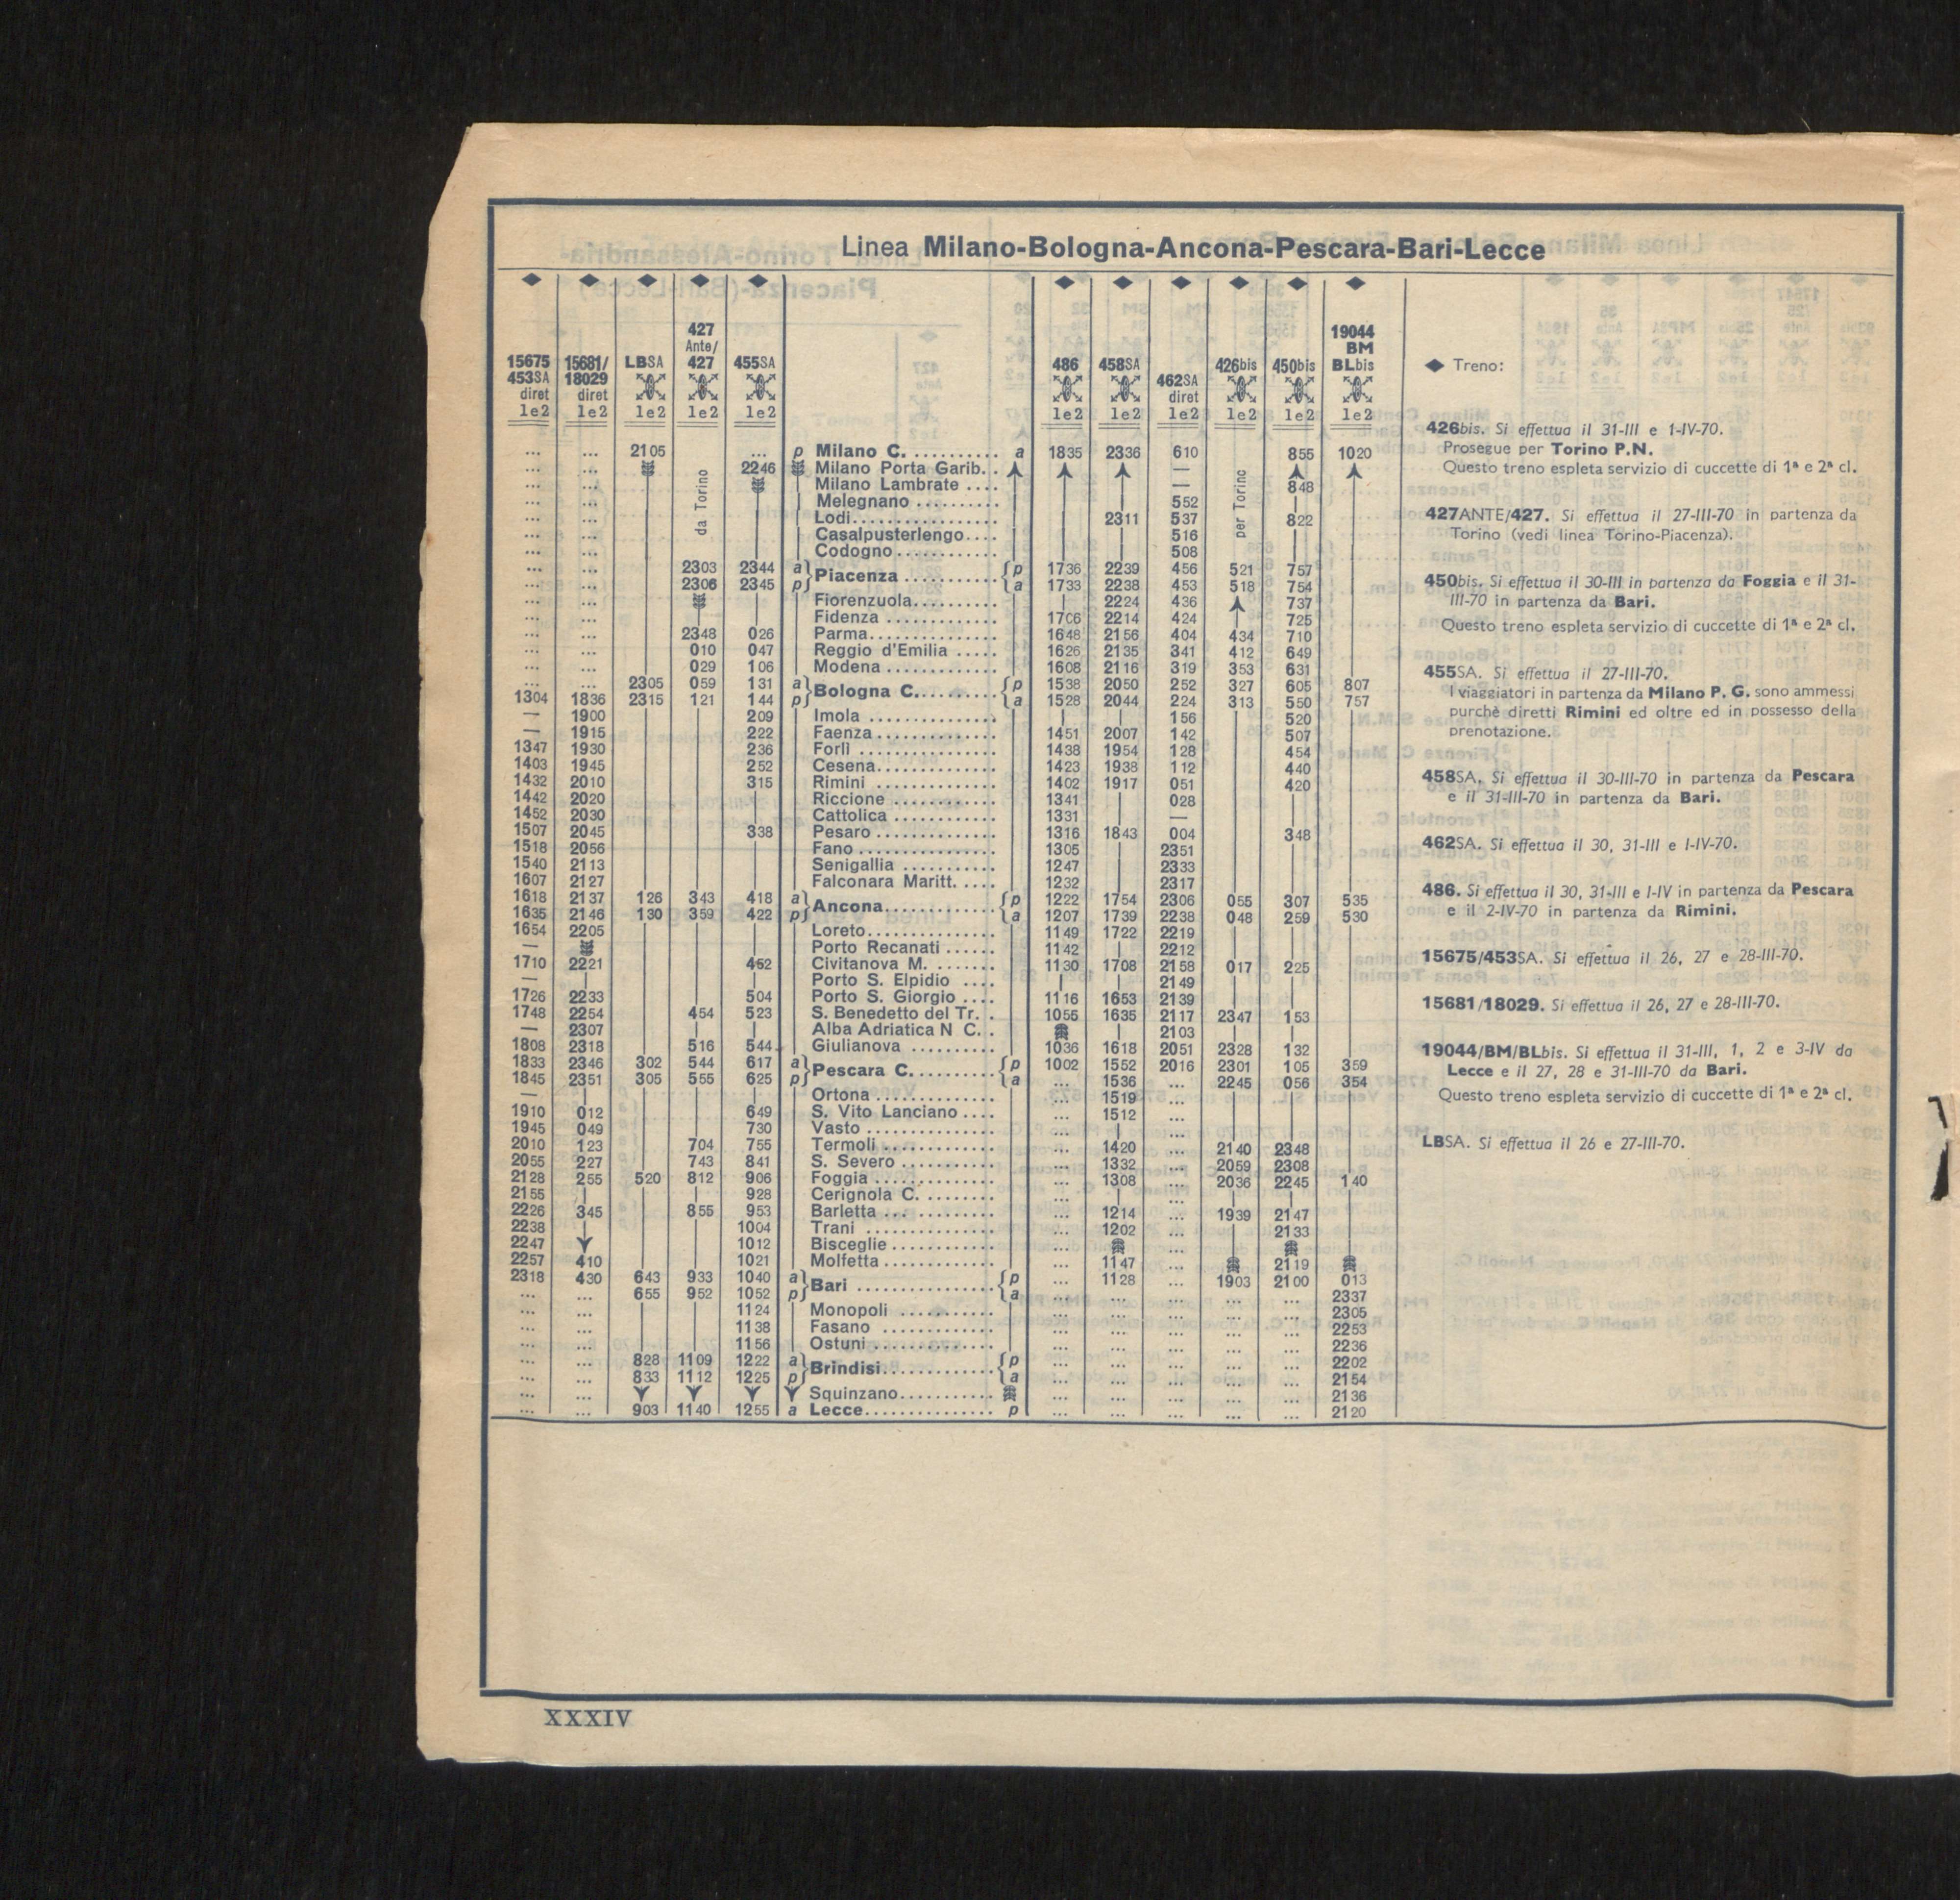 Linea Milano-Bologna-Ancona-Pescara-Bari-Lecce
◆ ◆ ◆ ◆ ◆ ◆ ◆ ◆ ◆ ◆ ◆
427 19044
Ante/ BM
15675 15681/ LBSA 427 455SA 486 458SA 426bis 450bis BLbis
453SA 18029 462SA
diret diret diret
1e2 1e2 1e2 1e2 1e2 1e2 1e2 1e2 1e2 1e2 1e2
... ... 2105 ... p Milano C. .......... a 1835 2336 610 855 1020
... ... da Torino 2246 Milano Porta Garib. . — per Torino
... ... Milano Lambrate .... — 848
... ... Melegnano .......... 552
... ... Lodi................. 2311 537 822
... ... Casalpusterlengo.... 516
... ... Codogno............ 508
... ... 2303 2344 a Piacenza ........... p 1736 2239 456 521 757
... ... 2306 2345 p a 1733 2238 453 518 754
... ... Fiorenzuola.......... 2224 436 737
... ... Fidenza ............. 1706 2214 424 725
... ... 2348 026 Parma............... 1648 2156 404 434 710
... ... 010 047 Reggio d'Emilia ..... 1626 2135 341 412 649
... ... 029 106 Modena ............. 1608 2116 319 353 631
... ... 2305 059 131 a Bologna C.......... p 1538 2050 252 327 605 807
1304 1836 2315 121 144 p a 1528 2044 224 313 550 757
— 1900 209 Imola ............... 156 520
— 1915 222 Faenza.............. 1451 2007 142 507
1347 1930 236 Forlì ................ 1438 1954 128 454
1403 1945 252 Cesena.............. 1423 1938 112 440
1432 2010 315 Rimini .............. 1402 1917 051 420
1442 2020 Riccione ............ 1341 028
1452 2030 Cattolica ............ 1331 —
1507 2045 338 Pesaro .............. 1316 1843 004 348
1518 2056 Fano ................ 1305 2351
1540 2113 Senigallia ........... 1247 2333
1607 2127 Falconara Maritt. .... 1232 2317
1618 2137 126 343 418 a Ancona............. p 1222 1754 2306 055 307 535
1635 2146 130 359 422 p a 1207 1739 2238 048 259 530
1654 2205 Loreto............... 1149 1722 2219
— Porto Recanati ...... 1142 2212
1710 2221 452 Civitanova M. ....... 1130 1708 2158 017 225
— Porto S. Elpidio .... 2149
1726 2233 504 Porto S. Giorgio .... 1116 1653 2139
1748 2254 454 523 S. Benedetto del Tr. . 1055 1635 2117 2347 153
— 2307 Alba Adriatica N C. . 2103
1808 2318 516 544 Giulianova .......... 1036 1618 2051 2328 132
1833 2346 302 544 617 a Pescara C.......... p 1002 1552 2016 2301 105 359
1845 2351 305 555 625 p a ... 1536 ... 2245 056 354
— Ortona .............. ... 1519 ...
1910 012 649 S. Vito Lanciano .... ... 1512 ...
1945 049 730 Vasto ............... ... ...
2010 123 704 755 Termoli ............. ... 1420 ... 2140 2348
2055 227 743 841 S. Severo ........... ... 1332 ... 2059 2308
2128 255 520 812 906 Foggia .............. ... 1308 ... 2036 2245 140
2155 928 Cerignola C. ........ ... ...
2226 345 855 953 Barletta ... ......... ... 1214 ... 1939 2147
2238 1004 Trani ............... ... 1202 ... 2133
2247 1012 Bisceglie............ ... ...
2257 410 1021 Molfetta............. ... 1147 ... 2119
2318 430 643 933 1040 a Bari ................ p ... 1128 ... 1903 2100 013
... ... 655 952 1052 p a ... ... ... ... ... 2337
... ... 1124 Monopoli ........... ... ... ... ... ... 2305
... ... 1138 Fasano ............. ... ... ... ... ... 2253
... ... 1156 Ostuni .............. ... ... ... ... ... 2236
... ... 828 1109 1222 a Brindisi............. p ... ... ... ... ... 2202
... ... 833 1112 1225 p a ... ... ... ... ... 2154
... ... Squinzano........... ... ... ... ... ... 2136
... ... 903 1140 1255 a Lecce............... p ... ... ... ... ... 2120
◆ Treno:
426bis. Si effettua il 31-III e 1-IV-70.
Prosegue per Torino P.N.
Questo treno espleta servizio di cuccette di 1ª e 2ª cl.
427ANTE/427. Si effettua il 27-III-70 in partenza da
Torino (vedi linea Torino-Piacenza).
450bis. Si effettua il 30-III in partenza da Foggia e il 31-
III-70 in partenza da Bari.
Questo treno espleta servizio di cuccette di 1ª e 2ª cl.
455SA. Si effettua il 27-III-70.
I viaggiatori in partenza da Milano P. G. sono ammessi
purchè diretti Rimini ed oltre ed in possesso della
prenotazione.
458SA. Si effettua il 30-III-70 in partenza da Pescara
e il 31-III-70 in partenza da Bari.
462SA. Si effettua il 30, 31-III e I-IV-70.
486. Si effettua il 30, 31-III e I-IV in partenza da Pescara
e il 2-IV-70 in partenza da Rimini.
15675/453SA. Si effettua il 26, 27 e 28-III-70.
15681/18029. Si effettua il 26, 27 e 28-III-70.
19044/BM/BLbis. Si effettua il 31-III, 1, 2 e 3-IV da
Lecce e il 27, 28 e 31-III-70 da Bari.
Questo treno espleta servizio di cuccette di 1ª e 2ª cl.
LBSA. Si effettua il 26 e 27-III-70.
XXXIV